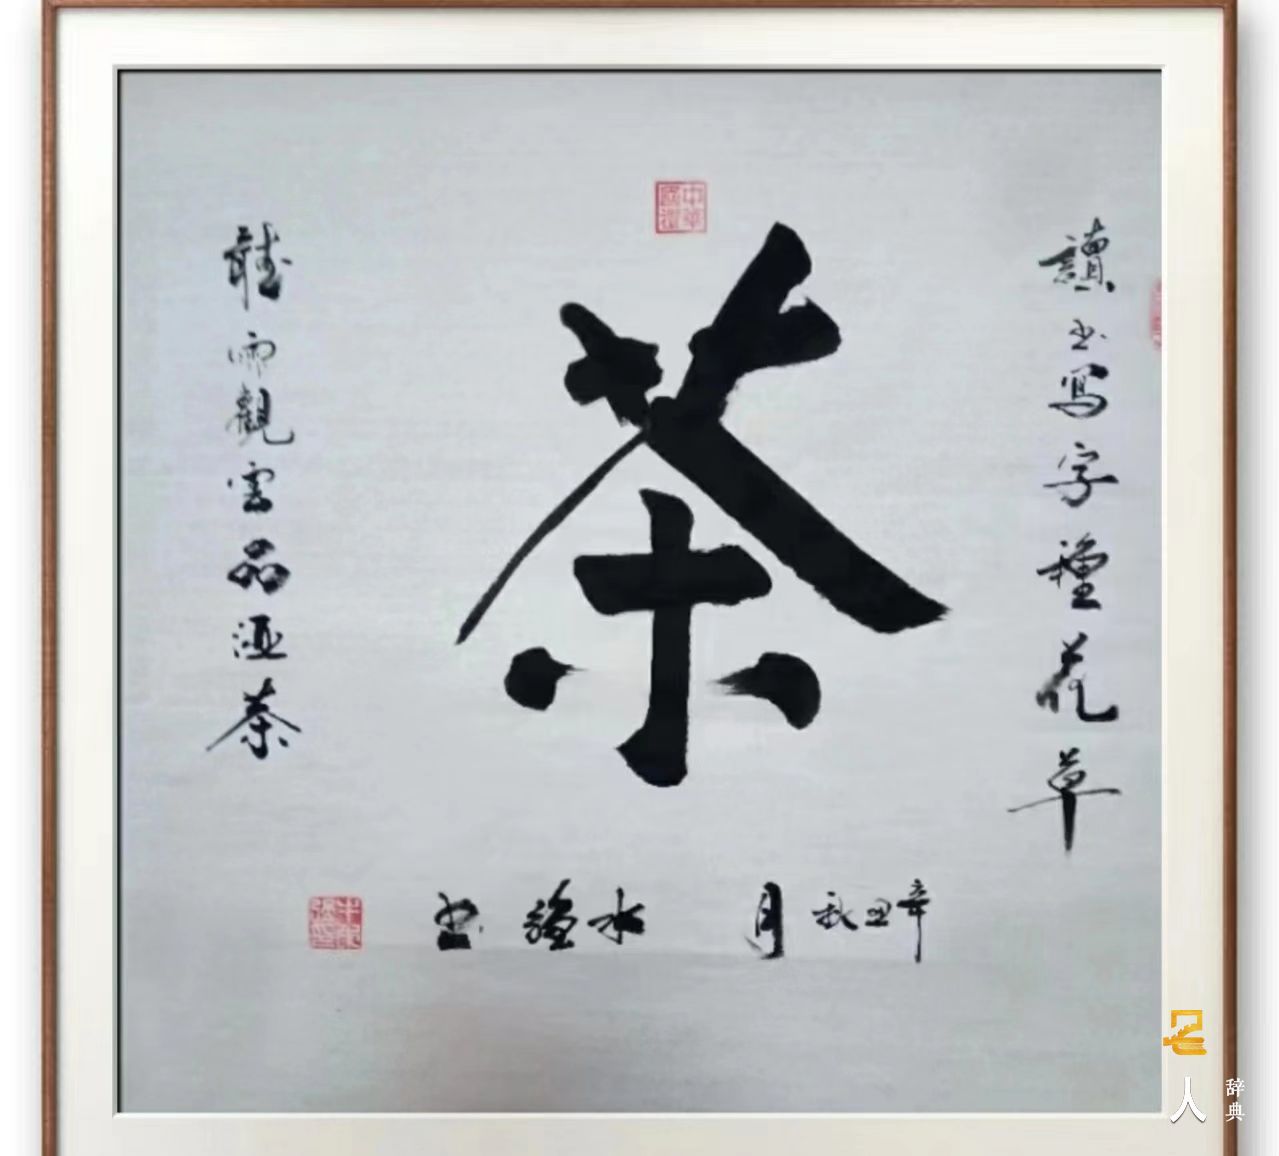 中華國禮
讀書寫字種花草
茶
聽雨觀雲品酒茶
辛丑秋月 水 書
名人辞典